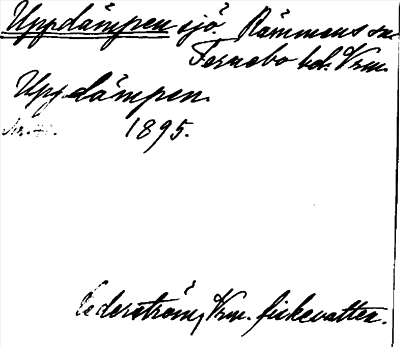 Uppdämpen sjö. Rämmens sn
Fernebo hd. Vrm.
Uppdämpen
1895.
Cederström, Vrm. fiskevatten.